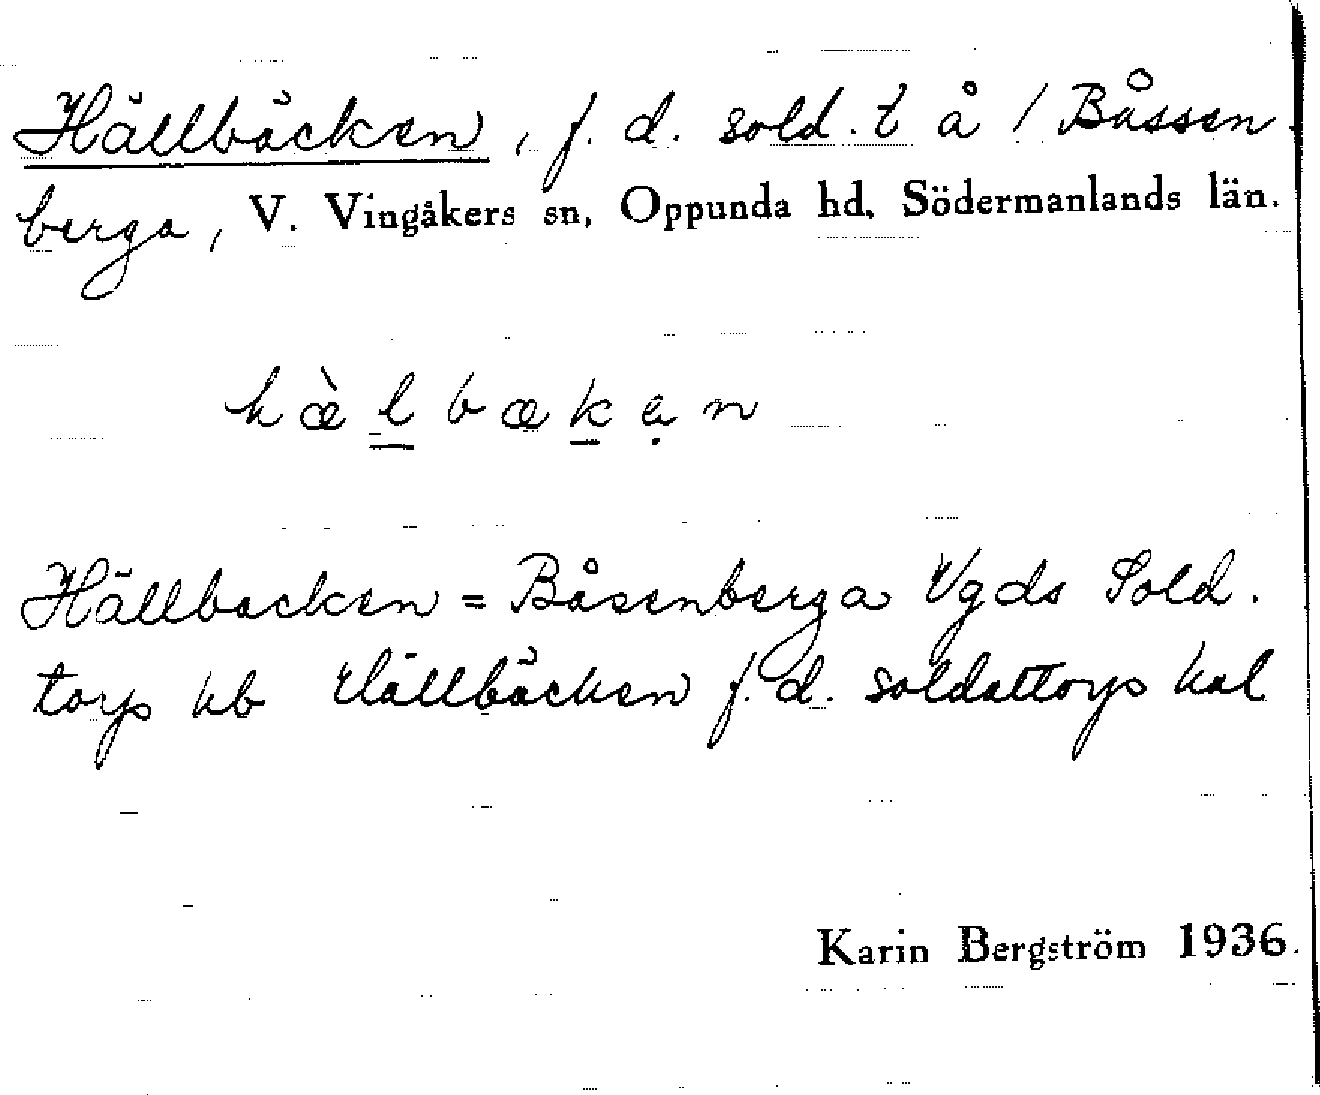 Hällbäcken, f. d. sold. t å / Båssen
berga, V. Vingåkers sn, Oppunda hd, Södermanlands län.
hæ̀lbækan
Hällbacken = Båsenberga Vgds Sold.
torp hb Hällbäcken f. d. soldattorp kal
Karin Bergström 1936.